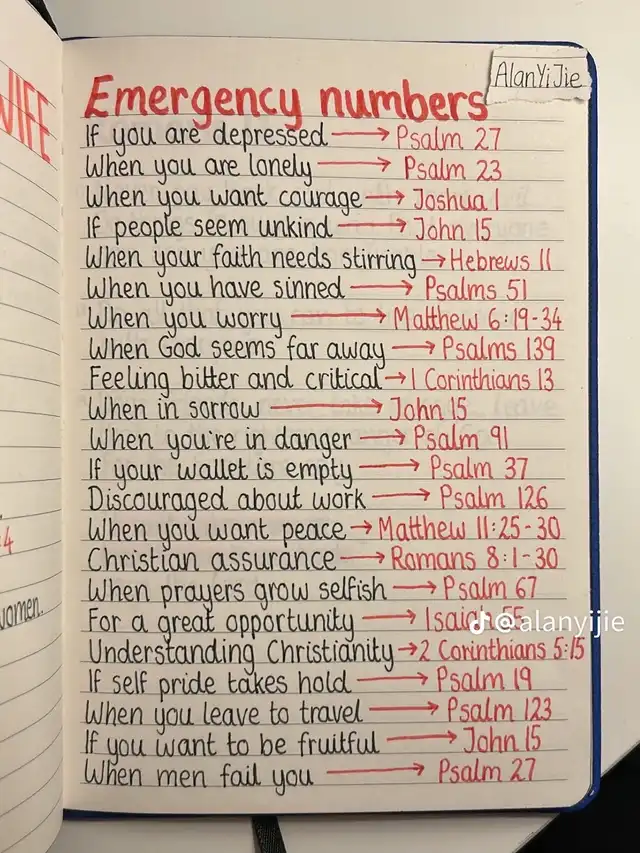 WIFE
AlanYiJie
Emergency numbers
If you are depressed → Psalm 27
When you are lonely → Psalm 23
When you want courage → Joshua 1
If people seem unkind → John 15
When your faith needs stirring → Hebrews 11
When you have sinned → Psalms 51
When you worry → Matthew 6:19-34
When God seems far away → Psalms 139
Feeling bitter and critical → 1 Corinthians 13
When in sorrow → John 15
When you're in danger → Psalm 91
If your wallet is empty → Psalm 37
Discouraged about work → Psalm 126
:4
When you want peace → Matthew 11:25-30
Christian assurance → Romans 8:1-30
When prayers grow selfish → Psalm 67
women.
For a great opportunity → Isaiah 55
@alanyijie
Understanding Christianity → 2 Corinthians 5:15
If self pride takes hold → Psalm 19
When you leave to travel → Psalm 123
If you want to be fruitful → John 15
When men fail you → Psalm 27